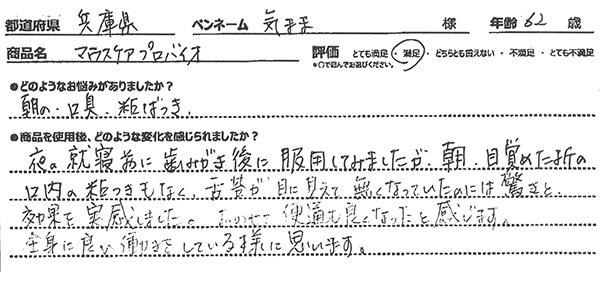 都道府県 兵庫県 ペンネーム 気まま 様 年齢 62 歳
商品名 マウスケアプロバイオ 評価 とても満足・満足・どちらとも言えない・不満足・とても不満足
*○で囲んでお選びください。
●どのようなお悩みがありましたか?
朝の・口臭・粘ばつき.
●商品を使用後、どのような変化を感じられましたか?
夜の就寝前に歯みがき後に服用してみましたが、朝、目覚めた時の
口内の粘つきもなく、舌苔が目に見えて無くなっていたのには驚きと、
効果を実感しました。あわせて便通も良くなったと感じます。
全身に良い働きをしている様に思います。